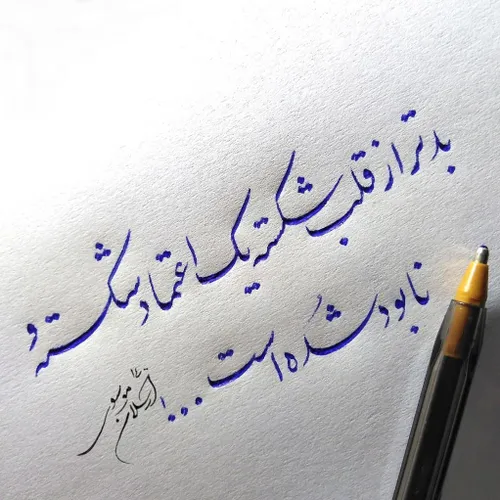 بدتر از قلب شکسته یک اعتماد شکسته و
نابود شده است...!
ارسلان موسوی